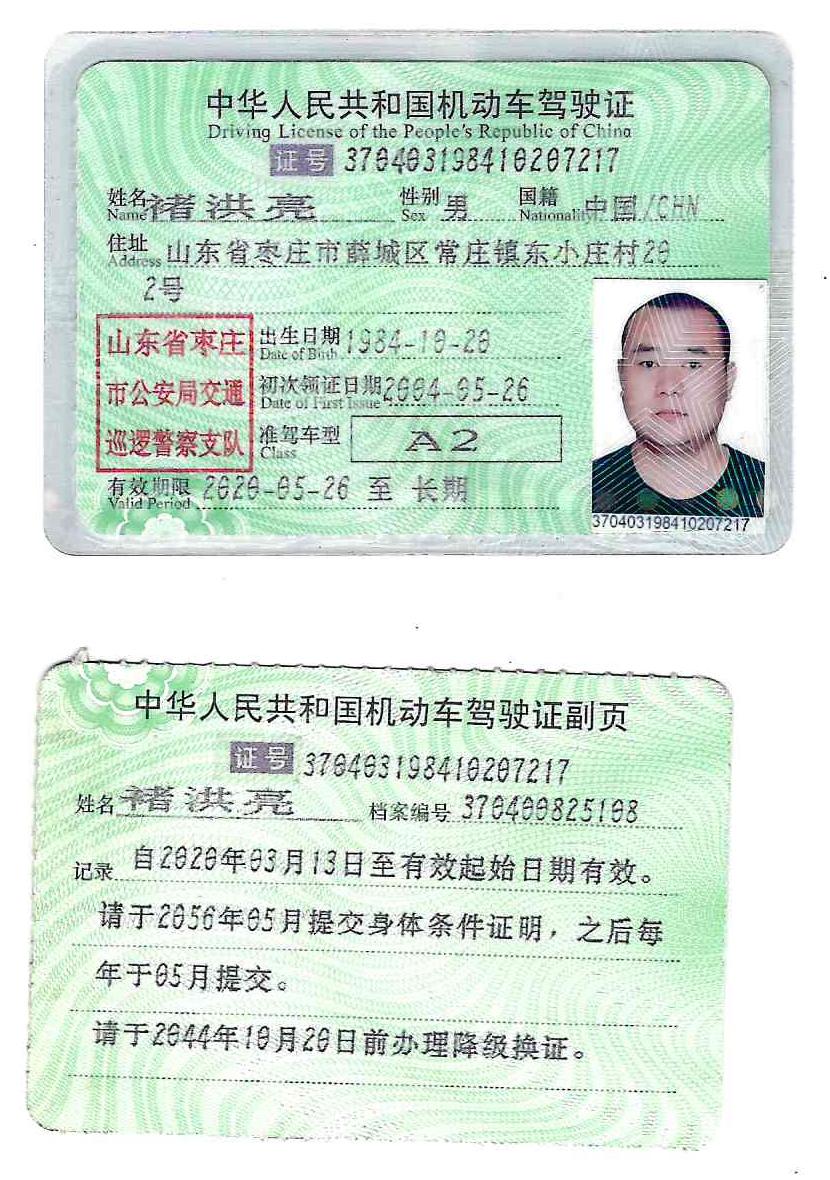 中华人民共和国机动车驾驶证
Driving License of the People's Republic of China
证号 370403198410207217
姓名 褚洪亮 性别 男 国籍 中国/CHN
Name Sex Nationality
住址 山东省枣庄市薛城区常庄镇东小庄村20
Address
2号
山东省枣庄
市公安局交通
巡逻警察支队
出生日期 1984-10-20
Date of Birth
初次领证日期 2004-05-26
Date of First Issue
准驾车型 A2
Class
有效期限 2020-05-26 至 长期
Valid Period
370403198410207217
中华人民共和国机动车驾驶证副页
证号 370403198410207217
姓名 褚洪亮 档案编号 370400825108
记录 自2020年03月13日至有效起始日期有效。
请于2056年05月提交身体条件证明，之后每
年于05月提交。
请于2044年10月20日前办理降级换证。